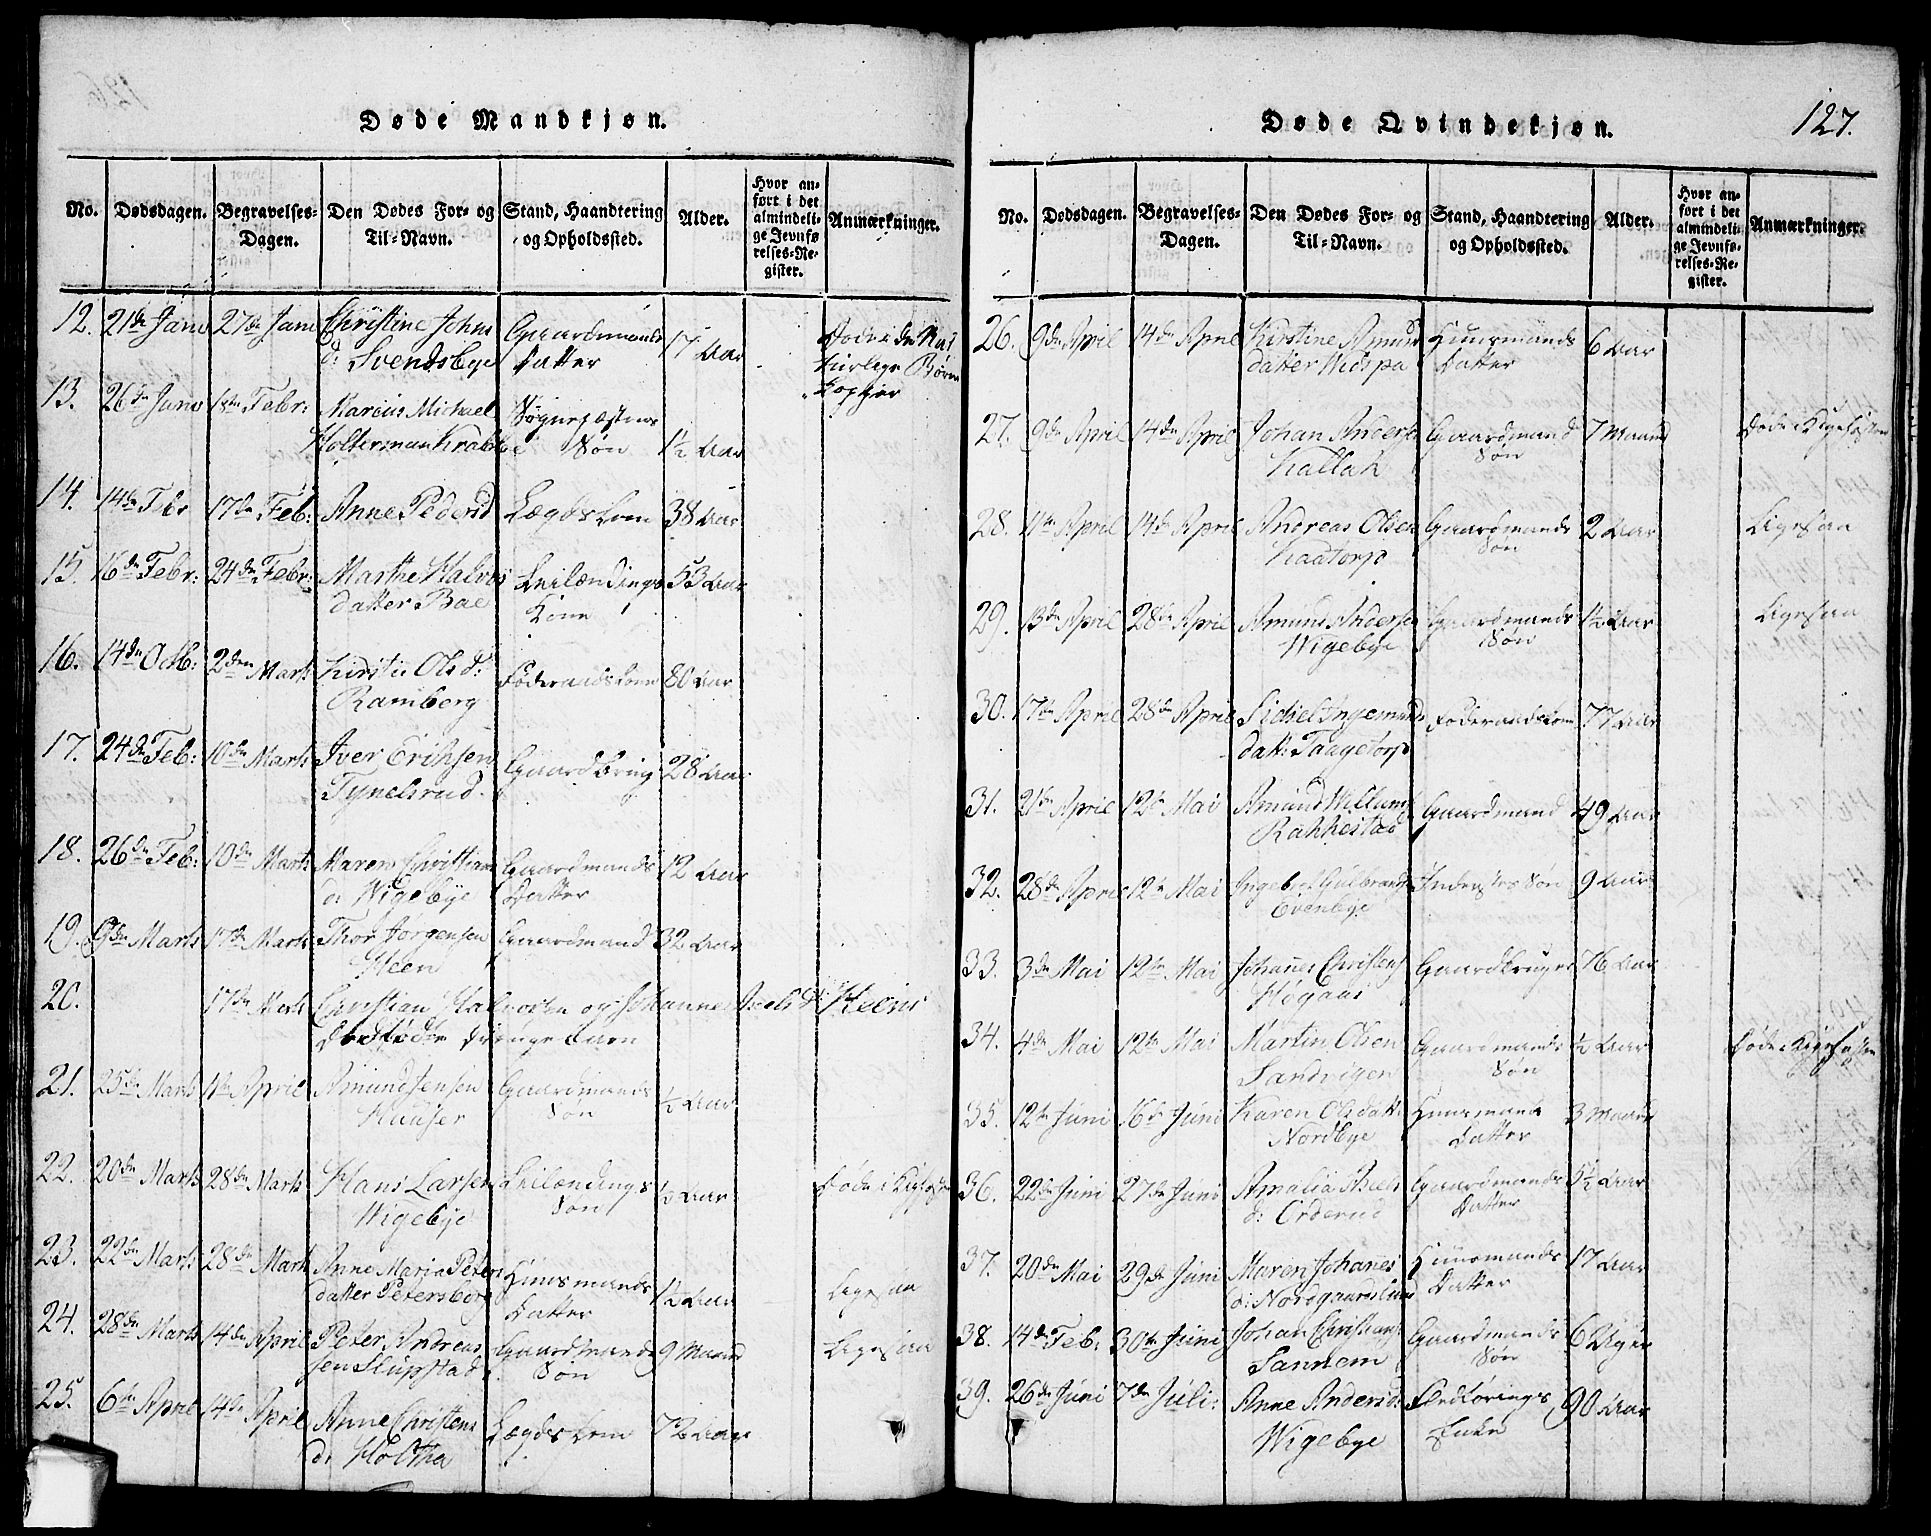 Døde Mandkjøn.
No. Dødsdagen. Begravelses-Dagen. Den Dødes For- og Til-Navn. Stand, Haandtering og Opholdssted. Alder. Hvor anført i det almindelige Jevnførelses-Register. Anmærkninger.
12. 21de Janv 27de Janv Christine Johns Gaardmands 17 Aar Døde i de Na
d: Svendsbye Datter turlige Børne
Kopper
13. 26de Janv 18de Febr: Marcus Michael Sognepræstens
Holterman Krabbe Søn 1½ Aar
14. 14de Febr 17de Feb: Anne Pedersd Lægdskone 38 Aar
15. 16de Febr: 24de Febr: Marthe Halvors Leilændings 53 Aar
datter Bae Kone
16. 14de Octb: 2den Marts Kirstie Olsd: Føderaadskone 80 Aar
Ramberg
17. 24de Feb: 10de Marts Iver Erichsen Gaardbrug 28 Aar
Tynelsrud.
18. 26de Feb: 10de Marts Maren Christians Gaardmands 12 Aar
d: Wigebye Datter
19. 9de Marts 17de Marts Thor Jørgensen Gaardmand 32 Aar
Heen
20. 17de Marts Christian Halvorsen og Johanne Niels d: Heens
Dødfødte Drengebarn
21. 25de Marts 11te April Amund Jensen Gaardmands ½ Aar
Huuser Søn
22. 20de Marts 28de Marts Hans Larsen Leilændings ½ Aar Døde i Kighoste
Wigebye Søn
23. 22de Marts 28de Marts Anne Maria Peters Huusmands 1½ Aar Ligesaa
datter Petersborg Datter
24. 28de Marts 14de April Peter Andreas Gaardmands 9 Maand Ligesaa
sen Slupstad Søn
25. 6te April 14de April Anne Christens Lægdskone 72 Aar
d: Holtha
Døde Qvindekjøn. 127.
No. Dødsdagen. Begravelses-Dagen. Den Dødes For- og Til-Navn. Stand, Haandtering og Opholdssted. Alder. Hvor anført i det almindelige Jevnførelses-Register. Anmærkninger.
26. 9de April 14de April Kirstine Amund Huusmands 6 Aar
datter Widspa Datter
27. 9de April 14de April Johan Andersen Gaardmand 7 Maand Døde i Kighosten
Kallak Søn
28. 11te April 14de April Andreas Olsen Gaardmands 2 Aar Ligesaa
Kaatorp Søn
29. 13de April 28de April Amund Andersen Gaardmands 1½ Aar Ligesaa
Wigebye Søn
30. 17de April 28de April Sidsel Ingemunds Føderaadskone 77 Aar
datt: Taagetorp
31. 21de April 12te Mai Amund Willums Gaardmand 49 Aar
Rakkestad
32. 28de April 12te Mai Ingebret Gulbrands Inderstes Søn 9 Aar
Evenbye
33. 3de Mai 12te Mai Johanes Christens Gaardbruger 76 Aar
Høgaas
34. 4de Mai 12te Mai Martin Olsen Gaardmands ½ Aar Døde i Kighosten
Sandvigen Søn
35. 12te Juni 16de Juni Karen Olsdatt: Huusmands 3 Maand
Nordbye Datter
36. 22de Juni 27de Juni Amalia Niels Gaardmands 5½ Aar
d: Orderud Datter
37. 20de Mai 29de Juni Maren Johanes Huusmands 17 Aar
d: Nordgaardslund Datter
38. 14de Feb: 30te Juni Johan Christians Gaardmands 6 Uger
Sannem Søn
39. 26de Juni 7de Juli: Anne Andersd: Enke 90 Aar
Wigebye